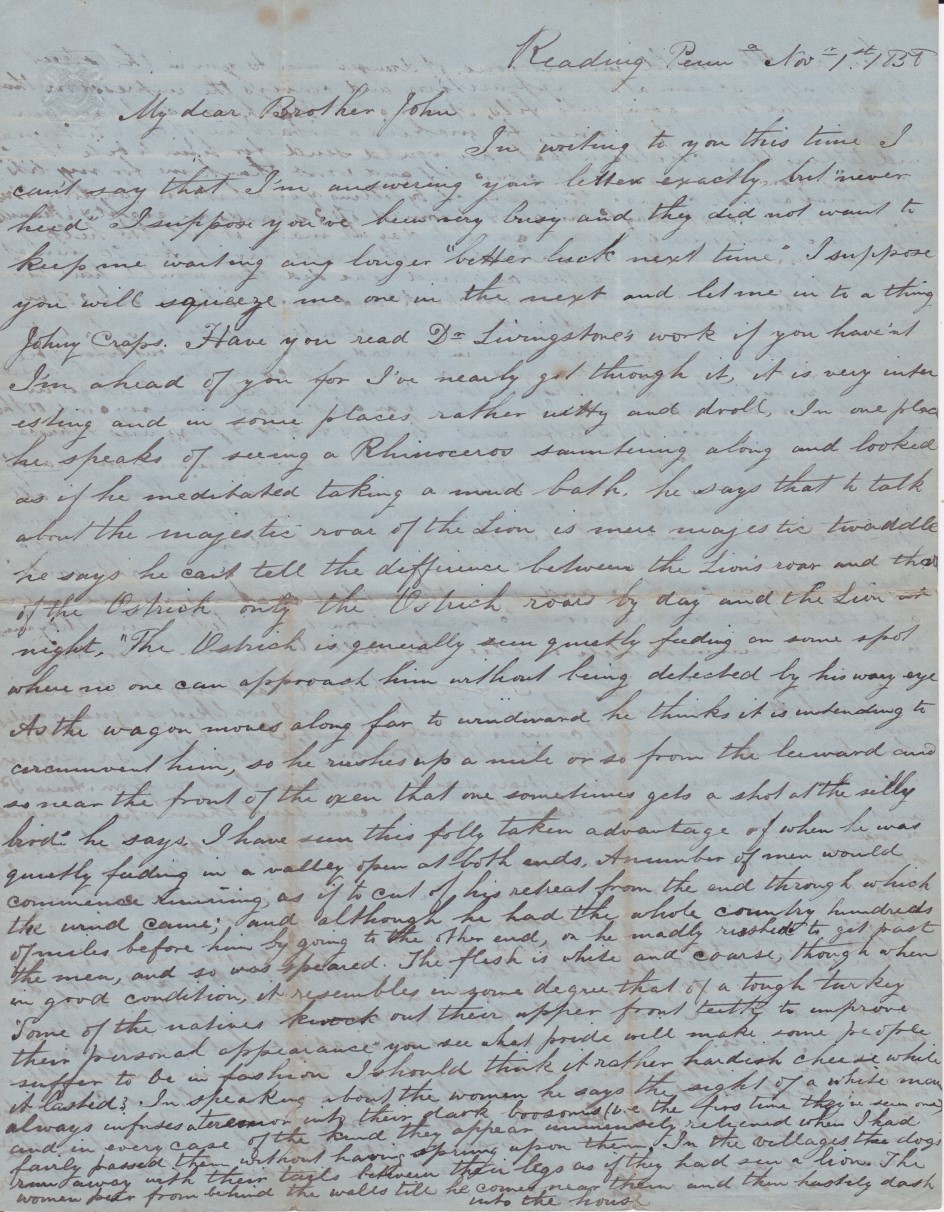 Reading Penn a Nov r 1st 1858
My dear Brother John
In writing to you this time I
can't say that I'm answering "your letter exactly, but "never
heed" I suppose you've been very busy and they did not want to
keep me waiting any longer "better luck next time". I suppose
you will squeeze me one in the next and let me in to a thing
Johny Craps. Have you read Dr Livingstone's work if you have'nt
I'm ahead of you for I've nearly got through it, it is very inter
esting and in some places rather witty and droll, In one plac
he speaks of seeing a Rhinoceros sauntering along and looked
as if he meditated taking a mud bath. he says that to talk
about the majestic roar of the Lion is mere majestic twaddle
he says he can't tell the difference between the Lion's roar and that
of the Ostrich only the Ostrich roars by day and the Lion at
night, "The Ostrich is generally seen quietly feeding on some spot
where no one can approach him without being detected by his wary eye
As the wagon moves along far to windward he thinks it is intending to
circumvent him, so he rushes up a mile or so from the leeward and
so near the front of the oxen that one sometimes gets a shot at the silly
bird" he says, I have seen this folly taken advantage of when he was
quietly feeding in a valley open at both ends, A number of men would
commence running, as if to cut of his retreat from the end through which
the wind came; and although he had the whole country hundreds
of miles before him by going to the other end, on he madly rushed to get past
the men, and so was speared. The flesh is white and coarse, though when
in good condition, it resembles in some degree that of a tough turkey
"Some of the natives knock out their upper front teeth to improve
their personal appearance" you see what pride will make some people
suffer to be in fashion I should think it rather hardish cheese while
it lasted; In speaking about the women he says the sight of a white man
always infuses a tremor into their dark boosoms (i.e the first time they've seen one)
and in every case of the kind they appear immensely relieved when I had
fairly passed them without having sprung upon them. In the villages the dogs
run away with their tails between their legs as if they had seen a lion. The
women peer from behind the walls till he comes near them and then hastily dash
into the house